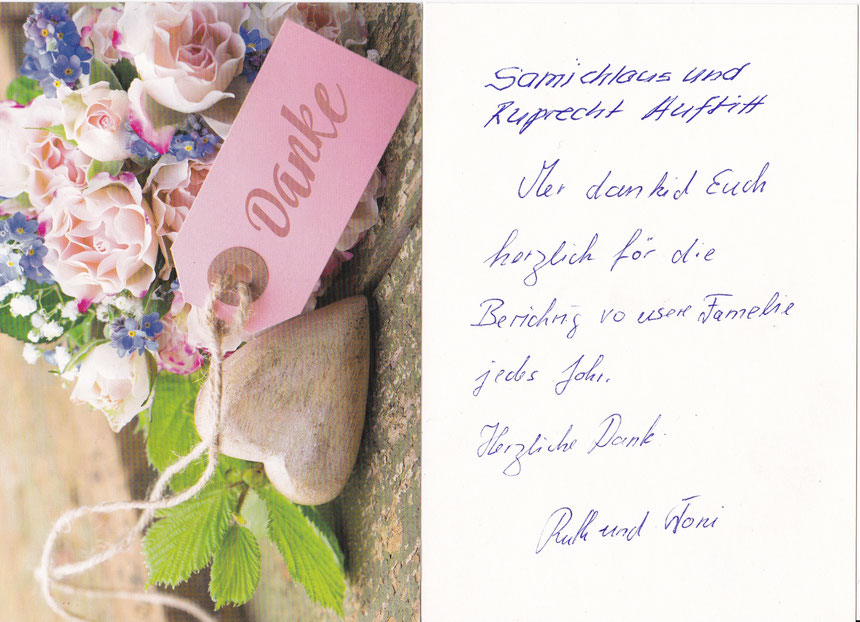 Danke
Samichlaus und
Ruprecht Auftitt
Mer dankid Euch
herzlich för die
Berichrig vo usere Famelie
jedes Johr.
Herzliche Dank.
Ruth und Toni